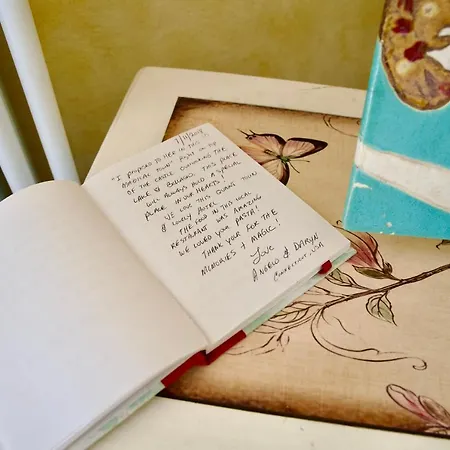 7/11/2018
"I PROPOSED TO HER IN THIS
MAGICAL TOWN" RIGHT ON TOP
OF THE CASTLE OVERLOOKING THE
LAKE & BELLAGIO. THIS PLACE
WILL ALWAYS HOLD A SPECIAL
PLACE IN OUR HEARTS!
WE LOVE THIS QUAINT TOWN
& LOVELY HOTEL.
THE FOOD IN THIS LOCAL
RESTAURANT WAS AMAZING
WE LOVED YOUR PASTA!
THANK YOUR FOR THE
MEMORIES + MAGIC!
Love
ANGELO & DARYN
CONNECTICUT, USA